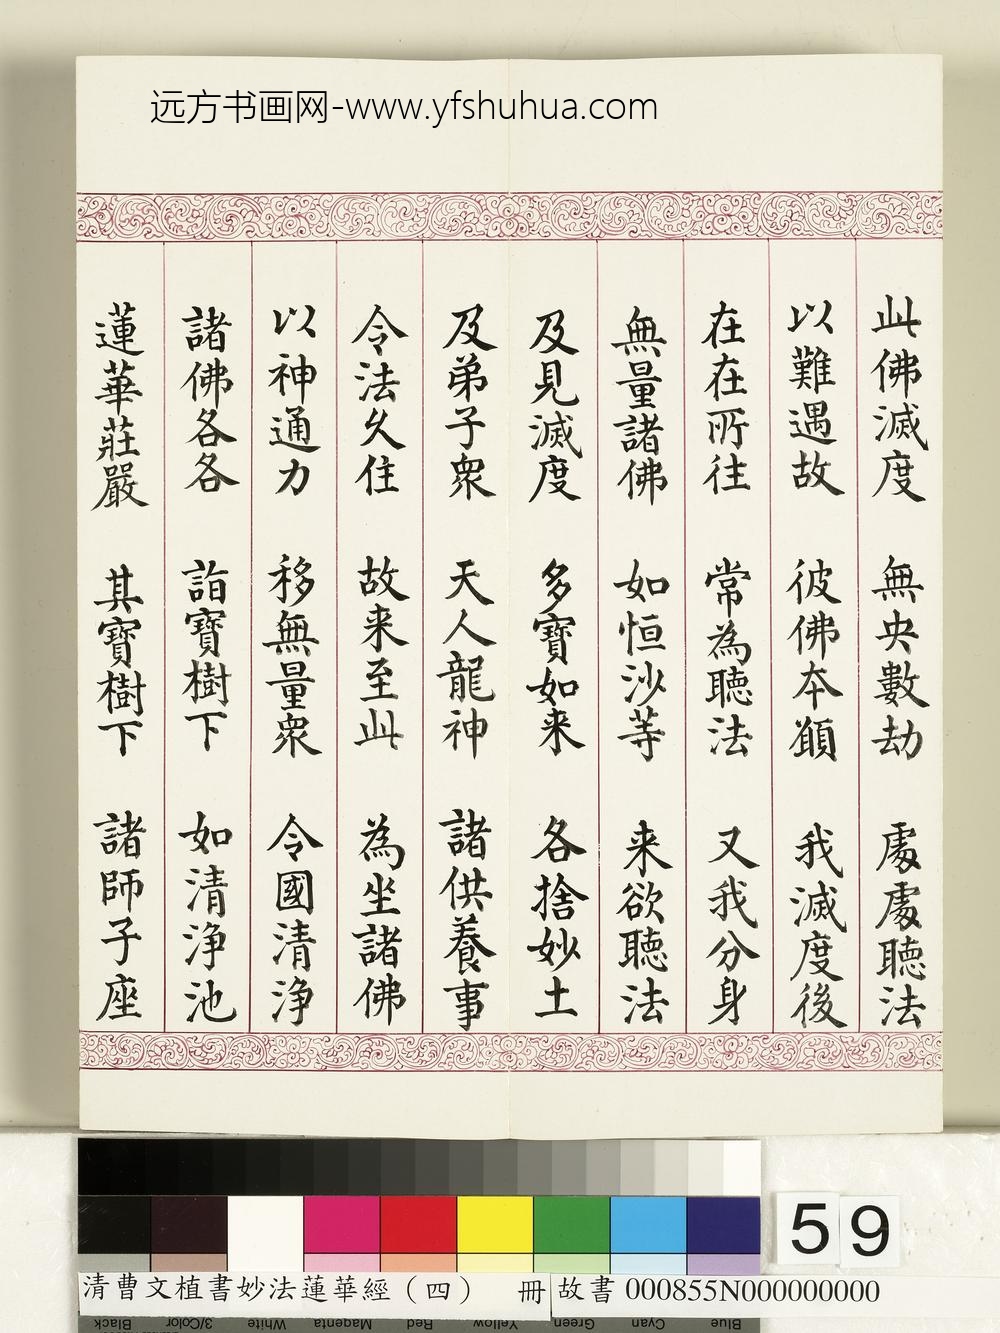 远方书画网-www.yfshuhua.com
此佛滅度 無央數劫 處處聽法
以難遇故 彼佛本願 我滅度後
在在所往 常為聽法 又我分身
無量諸佛 如恒沙等 来欲聽法
及見滅度 多寶如来 各捨妙土
及弟子衆 天人龍神 諸供養事
令法久住 故来至此 為坐諸佛
以神通力 移無量衆 令國清淨
諸佛各各 詣寶樹下 如清淨池
蓮華莊嚴 其寶樹下 諸師子座
59
清曹文植書妙法蓮華經（四） 冊 故書 000855N000000000
Black 3/Color White Magenta Red Yellow Green Cyan Blue